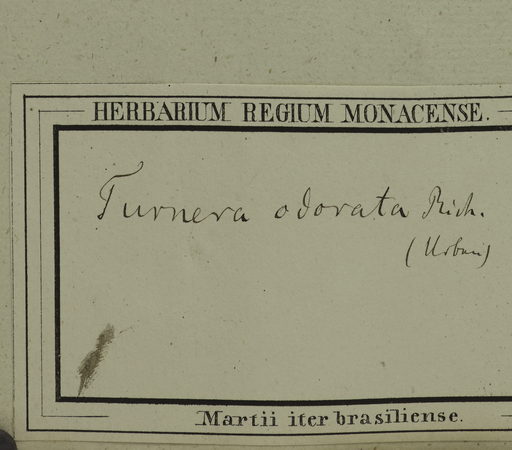 HERBARIUM REGIUM MONACENSE.
Turnera odorata Rich.
(Urban)
Martii iter brasiliense.